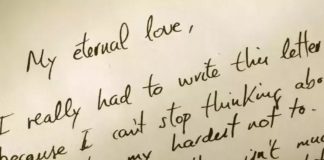 My eternal love,
I really had to write this letter
because I can't stop thinking abo
my hardest not to.
isn't muc